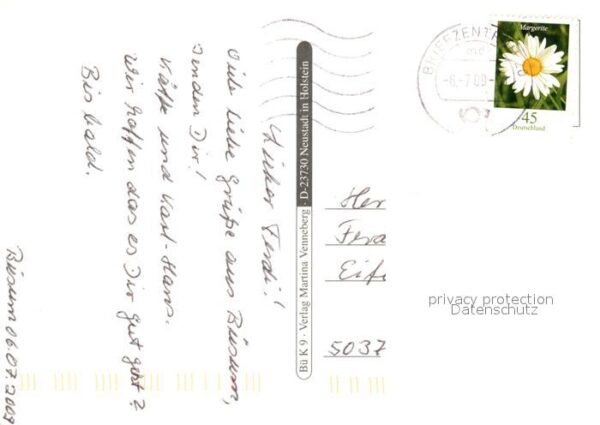 Büsum 06.07.2009
Lieber Ferdi!
Viele liebe Grüße aus Büsum,
senden Dir!
Käthe und Karl-Hans.
Wir hoffen das es Dir gut geht?
Bis bald.
Bü K 9 · Verlag Martina Venneberg · D-23730 Neustadt in Holstein
BRIEFZENTR
-6.-7.09-
Margerite
45
Deutschland
Her
Ferd
Eif
5037
privacy protection
Datenschutz